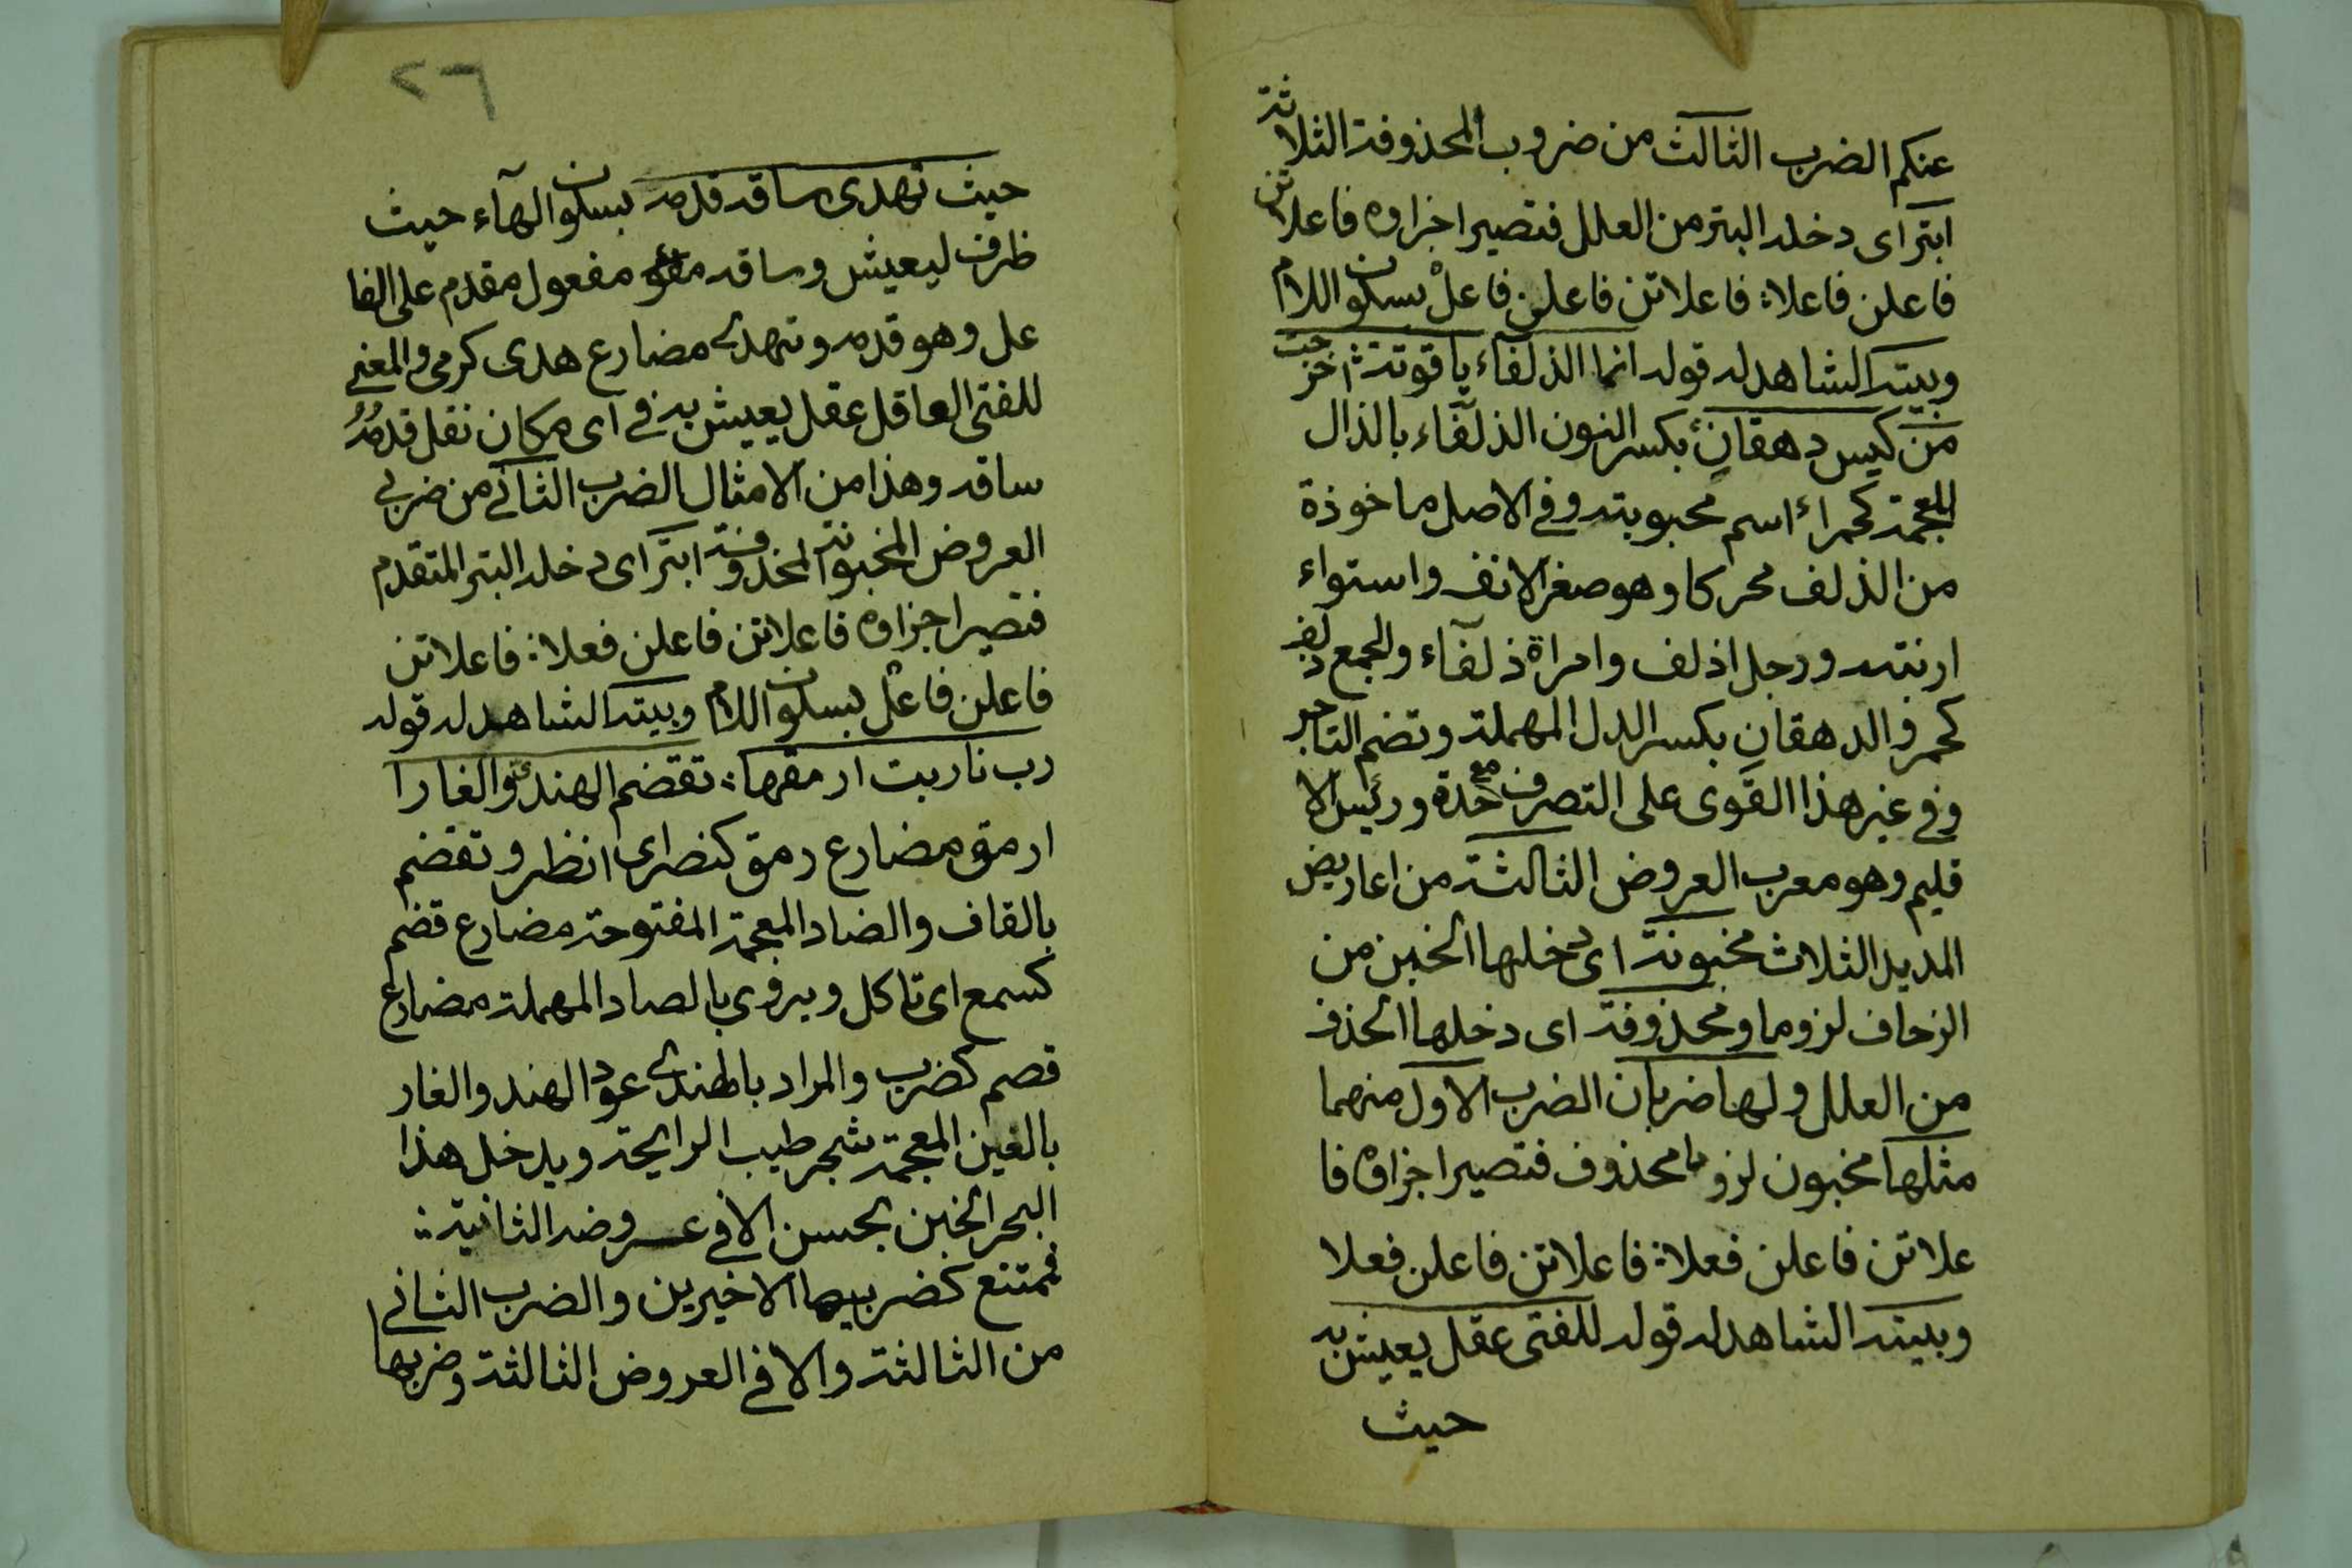 عنكم الضرب الثالث من ضروب المحذوفة الثلاثة
ابتر اى دخله البتر من العلل فتصير اجزاوه فاعلاتن
فاعلن فاعلا : فاعلاتن فاعلن فاعلْ بسكون اللام
وبيته الشاهد له قوله انما الذلفآء ياقوتة : اخرجت
من كيس دهقانِ بكسر النون الذلفآء بالذال
المعجمة كحمراء اسم محبوبته وفي الاصل ماخوذة
من الذلف محركا وهو صغر الانف واستواء
ارنبته ورجل اذلف وامراة ذلفآء والجمع ذلف
كحمر والدهقان بكسر الدل المهملة وتضم التاجر
وفي غير هذا القوى على التصرف مع حدة ورئيس الا
قليم وهو معرب العروض الثالثة من اعاريض
المديد الثلاث مخبونة اى دخلها الخبن من
الزحاف لزوما ومحذوفة اى دخلها الحذف
من العلل ولها ضربان الضرب الاول منهما
مثلها مخبون لزوما محذوف فتصير اجزاوه فا
علاتن فاعلن فعلا : فاعلاتن فاعلن فعلا
وبيته الشاهد له قوله للفتى عقل يعيش به
حيث
٢٦
حيث تهدى ساقه قدمه بسكون الهآء حيث
ظرف ليعيش وساقه مفعول مقدم على الفا
عل وهو قدمه وتهدى مضارع هدى كرمى والمعنى
للفتى العاقل عقل يعيش به في اى مكان نقل قدمُهُ
ساقه وهذا من الامثال الضرب الثاني من ضربي
العروض المخبونة المحذوفة ابتر اى دخله البتر المتقدم
فتصير اجزاوه فاعلاتن فاعلن فعلا : فاعلاتن
فاعلن فاعلْ بسكون اللام وبيته الشاهد له قوله
رب نار بت ارمقها : تقضم الهندى والغارا
ارمق مضارع رمق كنصر اى انظر وتقضم
بالقاف والضاد المعجمة المفتوحة مضارع قضم
كسمع اى تاكل ويروى بالصاد المهملة مضارع
قصم كضرب والمراد بالهندى عود الهند والغار
بالغين المعجمة شجر طيب الرايحة ويدخل هذا
البحر الخبن بحسن الا في عروضه الثانية :
فممتنع كضربيها الاخيرين والضرب الثاني
من الثالثة والا في العروض الثالثة وضربها